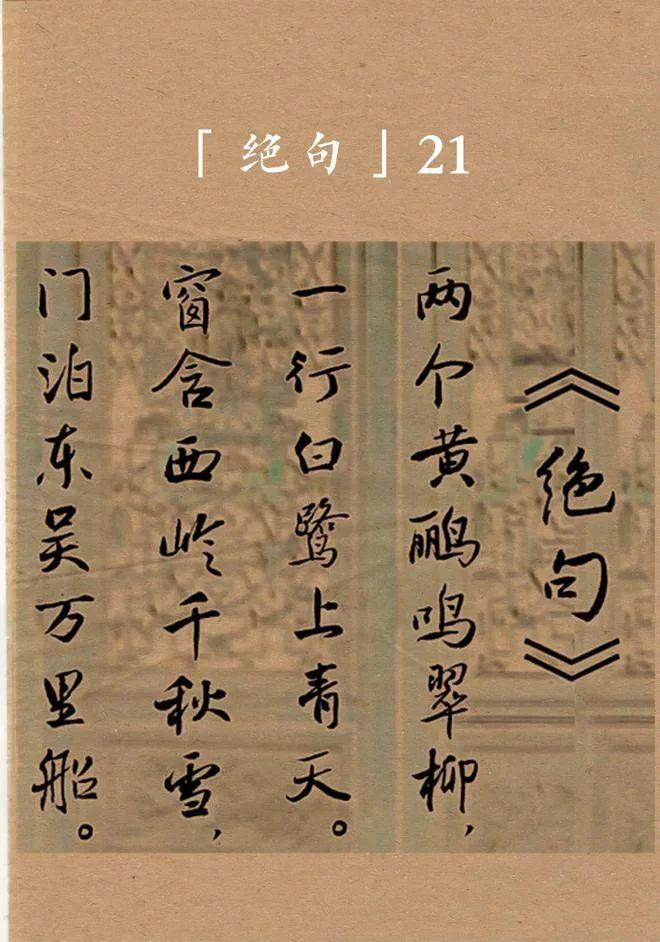 「绝句」21
《绝句》
两个黄鹂鸣翠柳，
一行白鹭上青天。
窗含西岭千秋雪，
门泊东吴万里船。